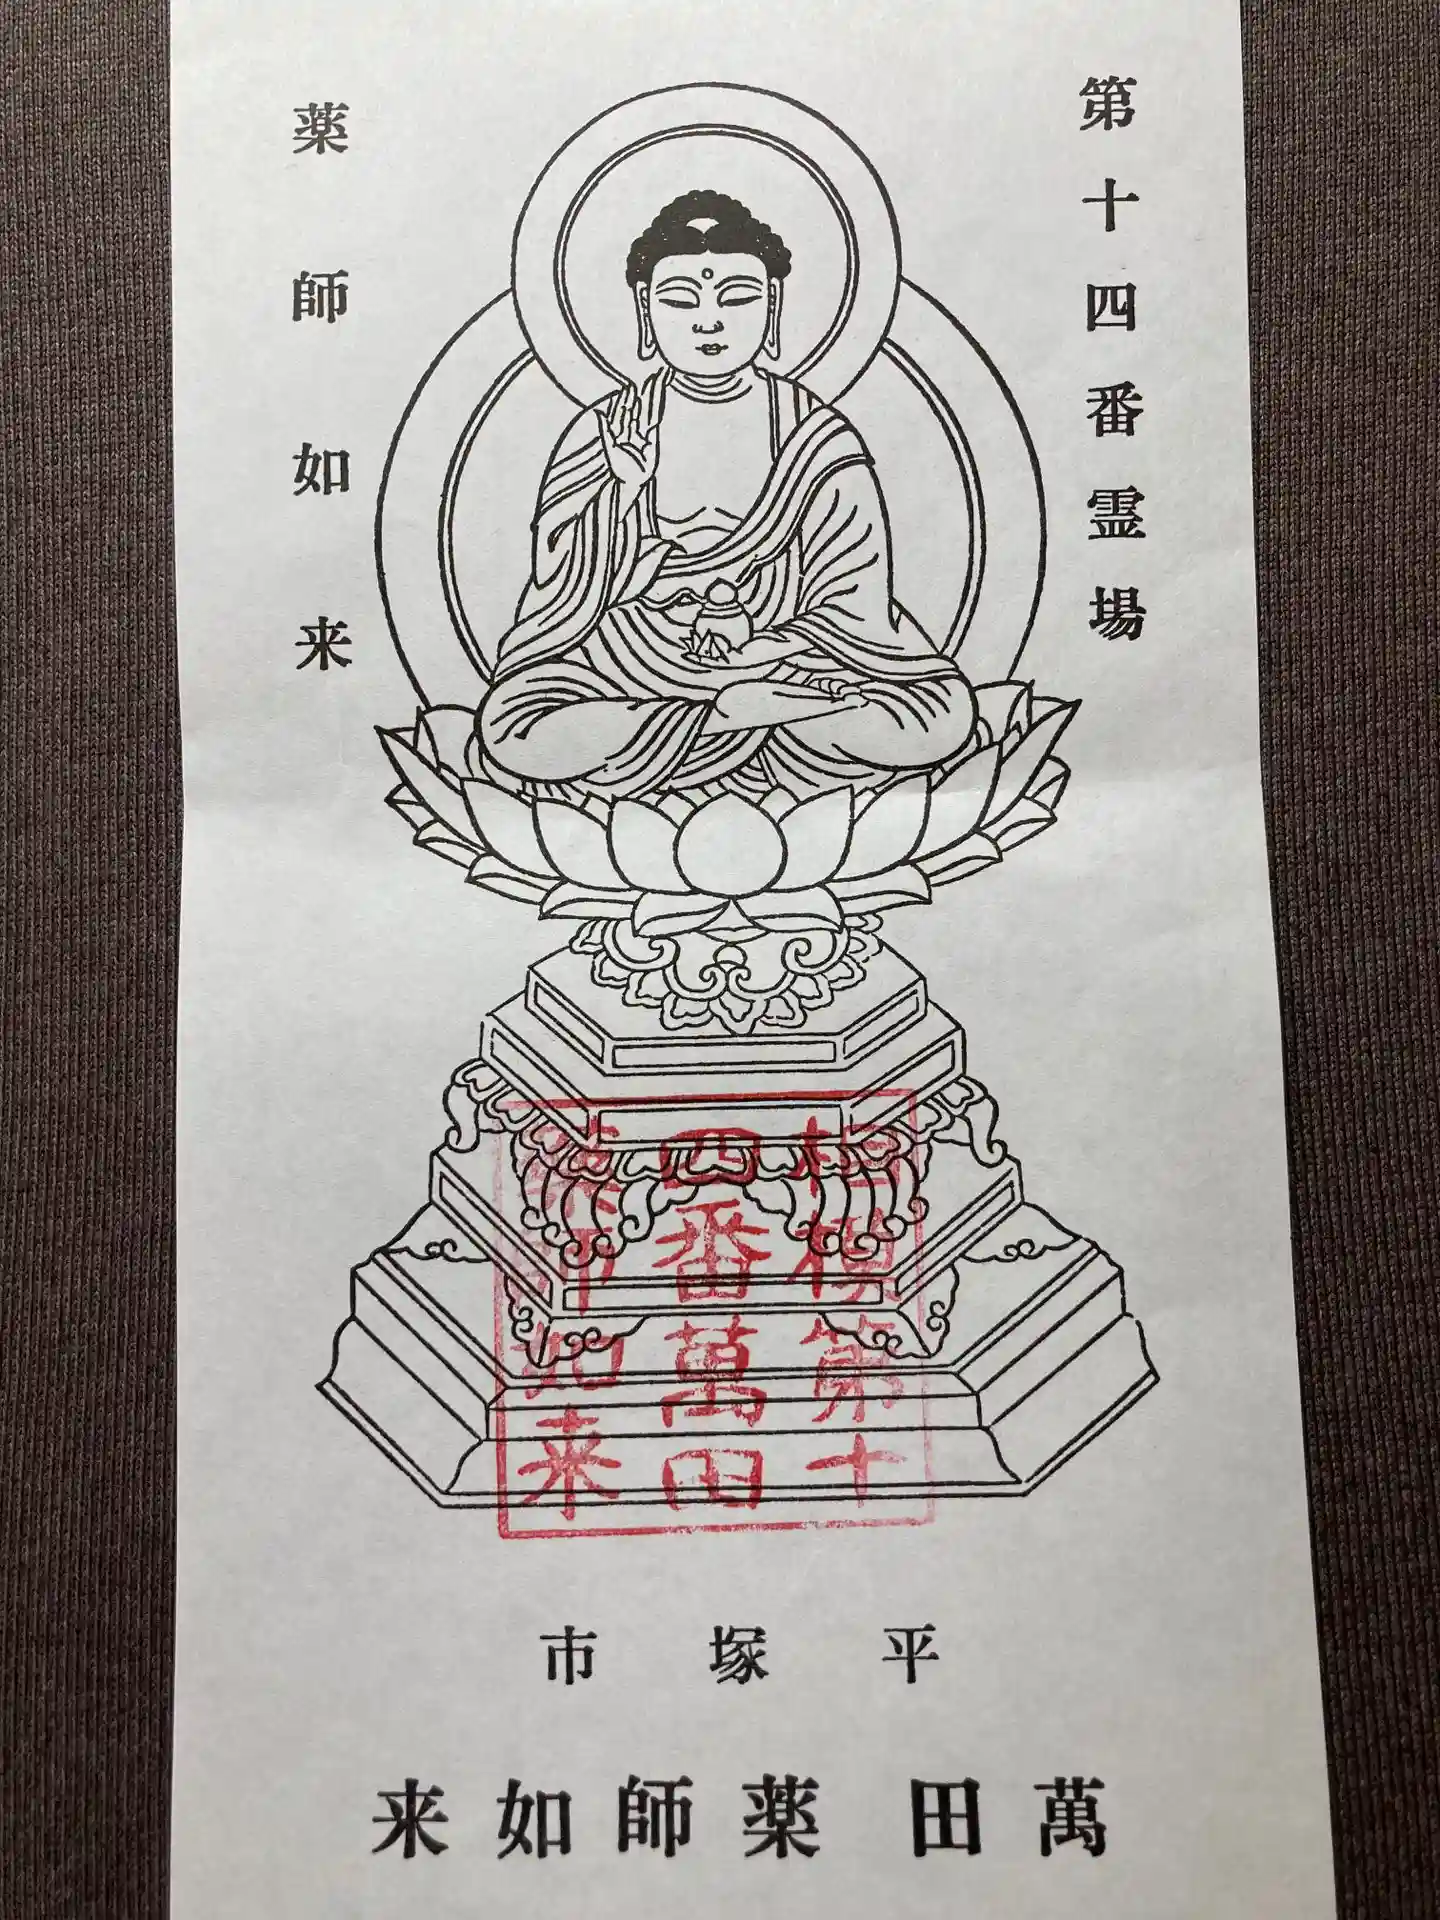 第十四番霊場
薬師如来
相模第十
四番萬田
薬師如来
平塚市
萬田 薬師如来